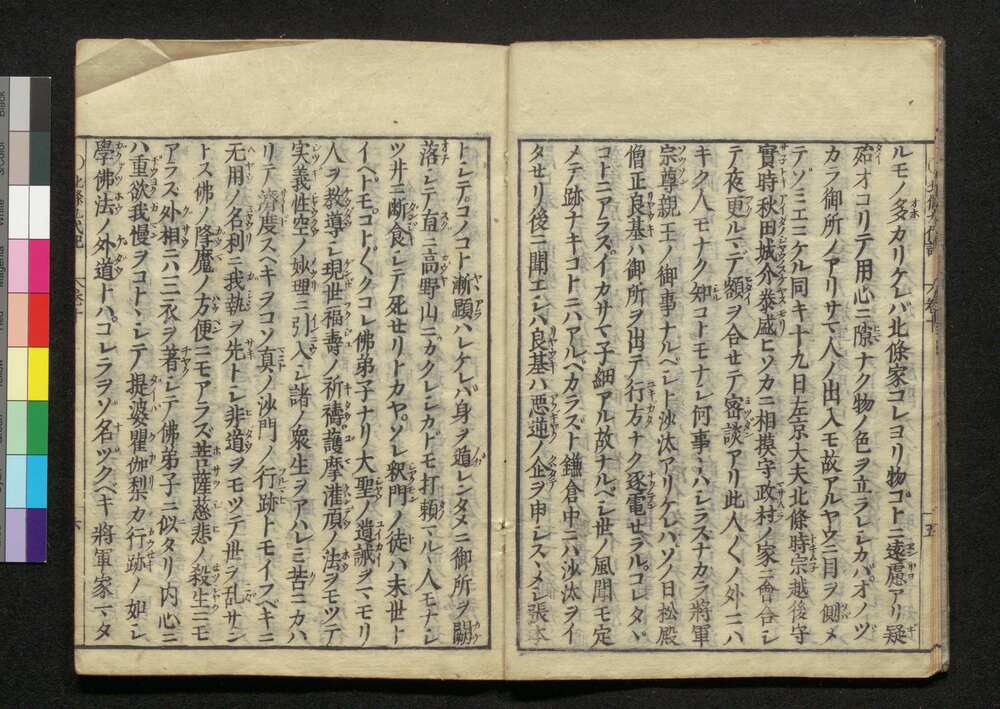 ルモノ多カリケレバ北條家コレヨリ物ゴトニ遠慮アリ疑
殆オコリテ用心ニ隙ナク物ノ色ヲ立ラレシカバオノツ
カラ御所ノアリサマ人ノ出入モ故アルヤウニ目ヲ側メ
テゾミエニケル同キ十九日左京大夫北條時宗越後守
實時秋田城介泰盛ヒソカニ相摸守政村ノ家ニ會合シ
テ夜更ルマデ額ヲ合セテ密談アリ此人〱ノ外ニハ
キク人モナク知コトモナシ何事ヤハシラスナカラ將軍
宗尊親王ノ御事ナルベシト沙汰アリケレハソノ日松殿
僧正良基ハ御所ヲ出テ行方ナク逐電セラルコレタヾ
コトニアラズイカサマ子細アル故ナルベシ世ノ風聞モ定
メテ跡ナキコトニハアルベカラズト鎌倉中ニハ沙汰ヲイ
タセリ後ニ聞エシハ良基ハ悪逆ノ企ヲ申シスヽメシ張本
トシテコノコト漸顕ハレケレバ身ヲ遁レンタメニ御所ヲ闕
落シテ直ニ高野山ニカクレシカドモ打頼マルヽ人モナシ
ツ井ニ断食シテ死セリトカヤソレ釈門ノ徒ハ末世ト
イヘトモコト〲クコレ佛弟子ナリ大聖ノ遺誡ヲマモリ
人ヲ教導シ現世福壽ノ祈禱護摩灌頂ノ法ヲモツテ
実義性空ノ妙理ニ引入シ諸ノ衆生ヲアハレミ苦ニカハ
リテ濟度スヘキヲコソ真ノ沙門ノ行跡トモイフベキニ
无用ノ名利ニ我執ヲ先トシ非道ヲモツテ世ヲ乱サン
トス佛ノ降魔ノ方便ニモアラズ菩薩慈悲ノ殺生ニモ
アラス外相ニハ三衣ヲ著シテ佛弟子ニ似タリ内心ニ
ハ重欲我慢ヲコトヽシテ提婆瞿伽梨カ行跡ノ如シ
學佛法ノ外道トハコレラヲゾ名ヅクベキ將軍家マタ